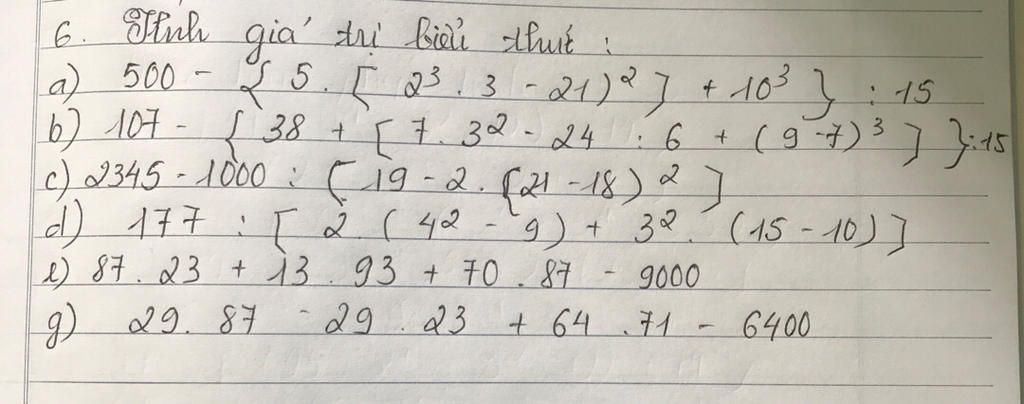 6. Tính giá trị biểu thức :
a) 500 - { 5 . [ 2³ . 3 - 21)² ] + 10³ } : 15
b) 107 - { 38 + [ 7 . 3² - 24 : 6 + ( 9 - 7)³ ] } : 15
c) 2345 - 1000 : [ 19 - 2 . (21 - 18)² ]
d) 177 : [ 2 . ( 4² - 9) + 3² . (15 - 10) ]
e) 87 . 23 + 13 . 93 + 70 . 87 - 9000
g) 29 . 87 - 29 . 23 + 64 . 71 - 6400